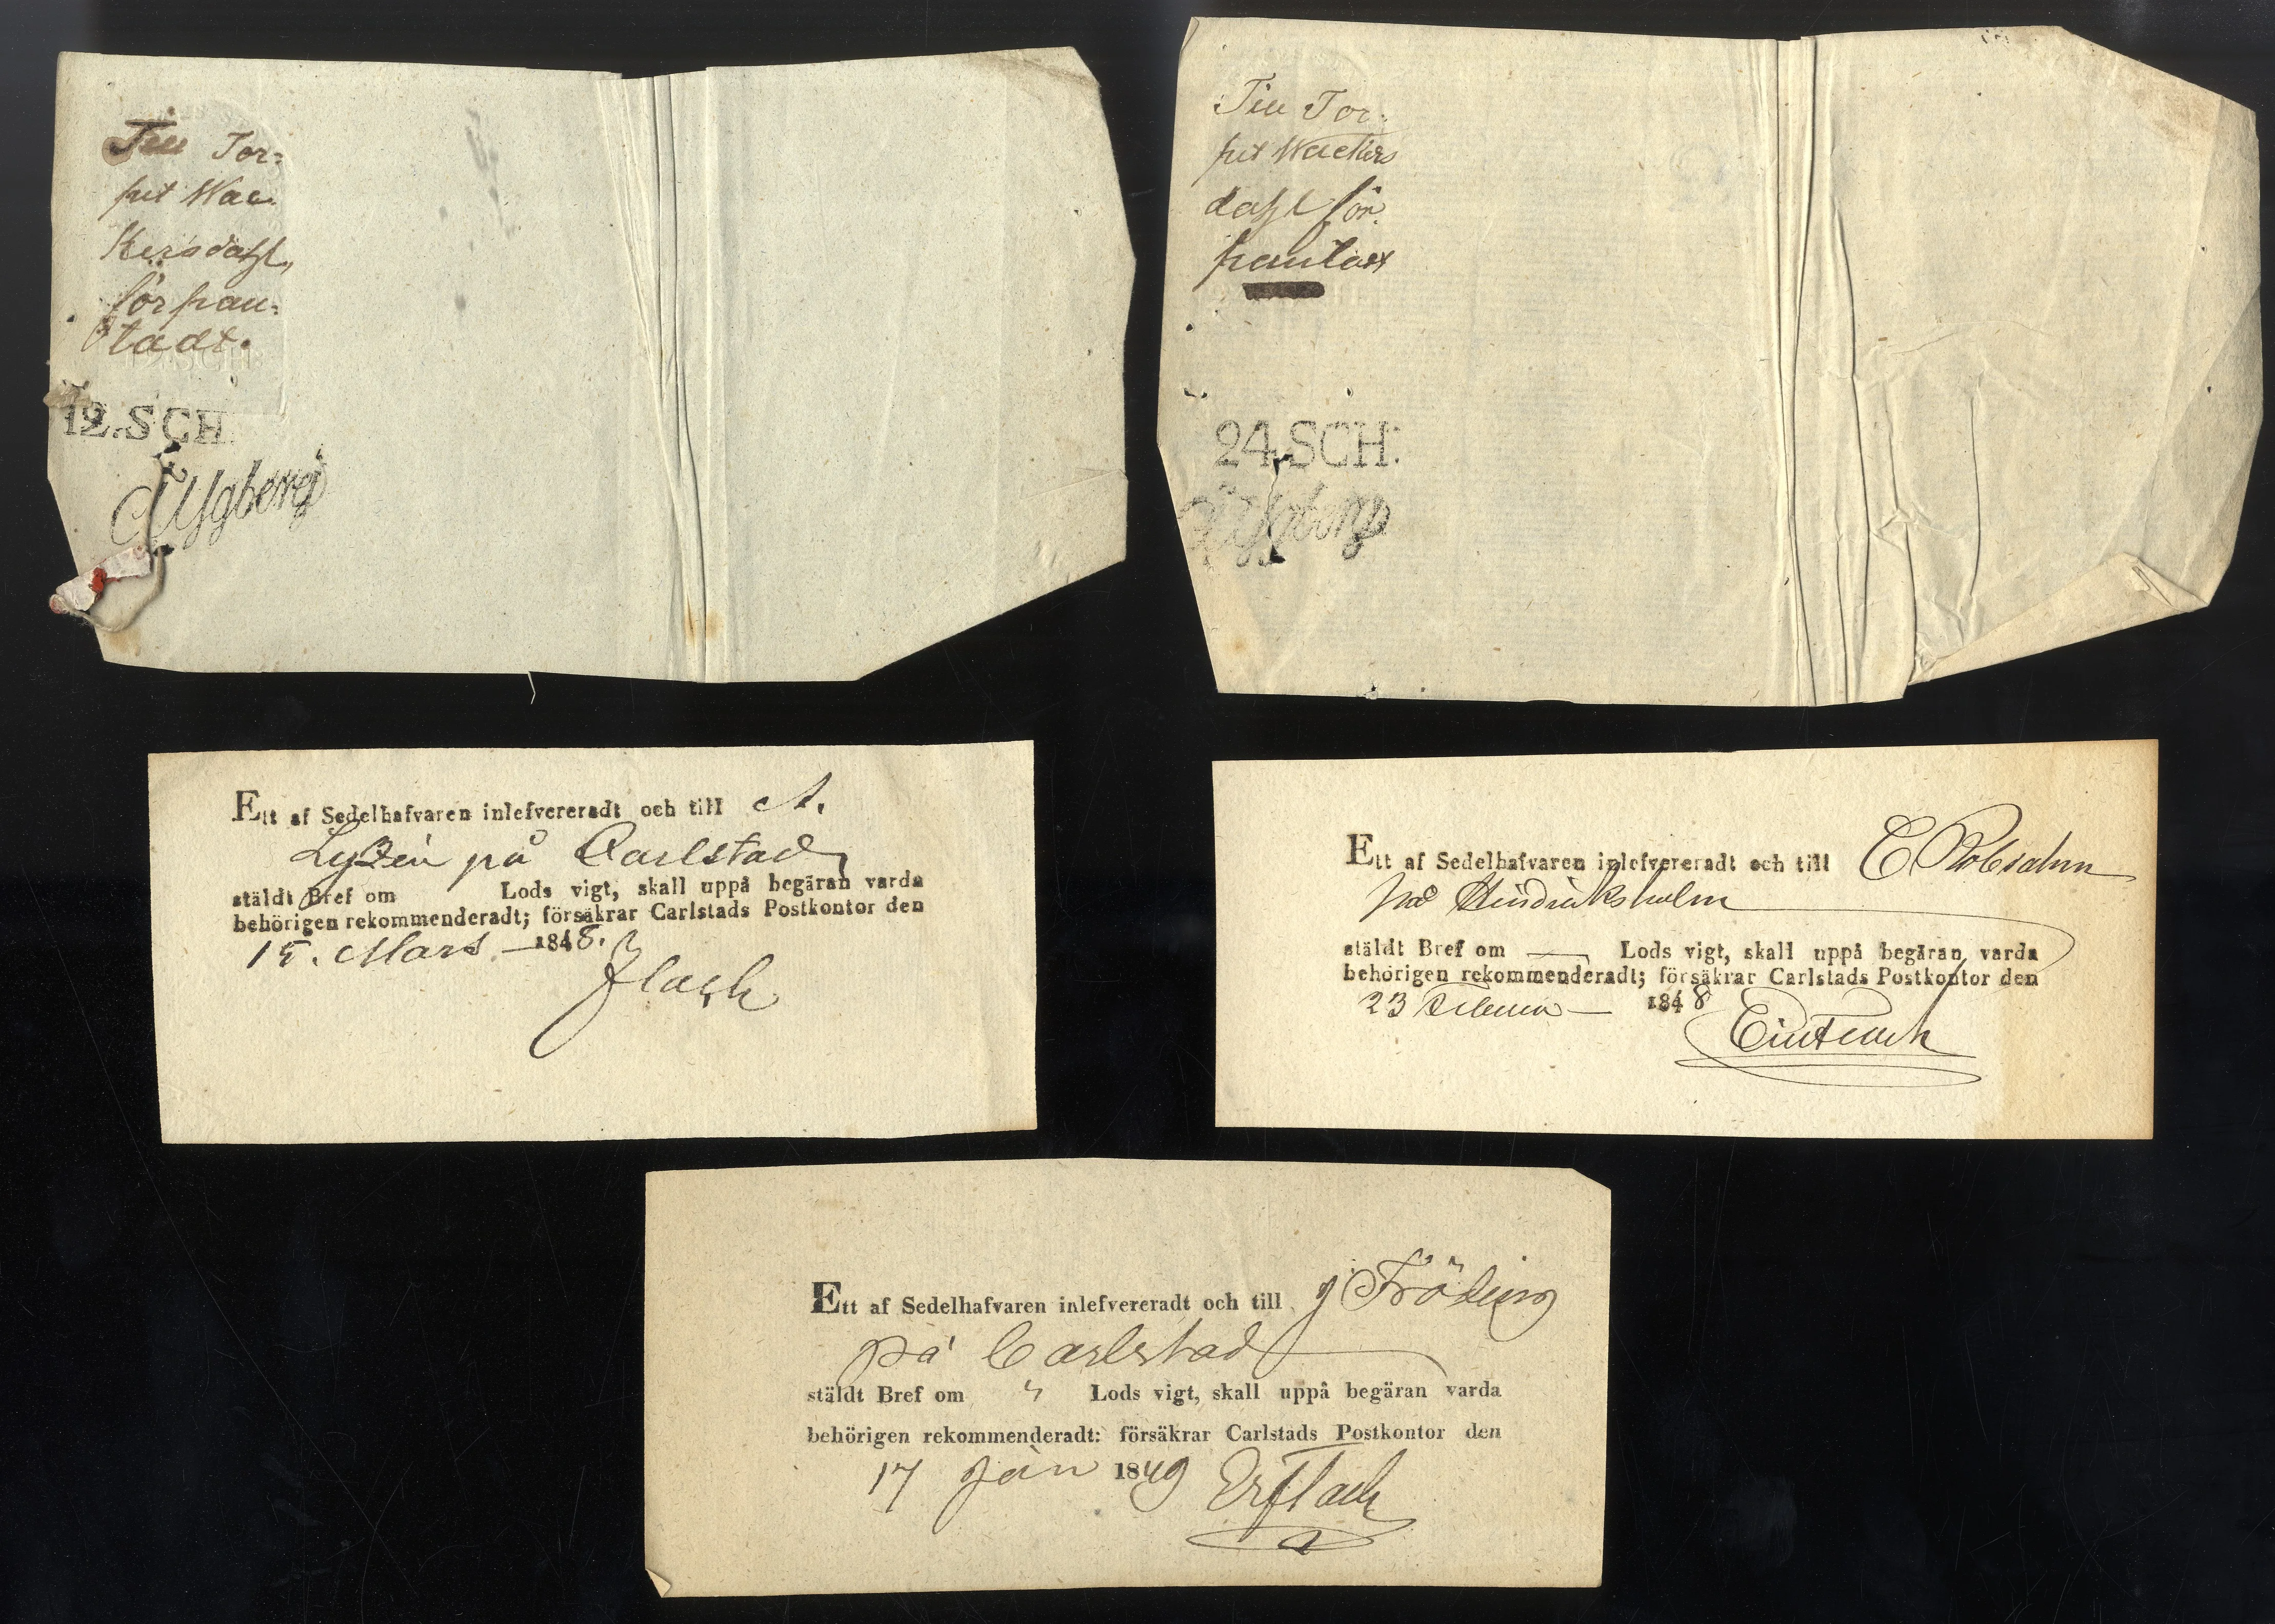 Till Tor=
pet Wac=
kersdahl,
förpan=
tadt.
12.SCH.
12.SCH.
Till Tor=
pet Wackers
dahl för
pantadt
24.SCH:
Ett af Sedelhafvaren inlefvereradt och till A.
Lyzén på Carlstad
ställdt Bref om Lods vigt, skall uppå begäran varda
behörigen rekommenderadt; försäkrar Carlstads Postkontor den
15. Mars 1848.
Flach
Ett af Sedelhafvaren inlefvereradt och till E
på Hindriksholm
ställdt Bref om — Lods vigt, skall uppå begäran varda
behörigen rekommenderadt; försäkrar Carlstads Postkontor den
23 1848
Ett af Sedelhafvaren inlefvereradt och till J Fröding
på Carlstad
ställdt Bref om " Lods vigt, skall uppå begäran varda
behörigen rekommenderadt: försäkrar Carlstads Postkontor den
17 Jan 1849 Flach